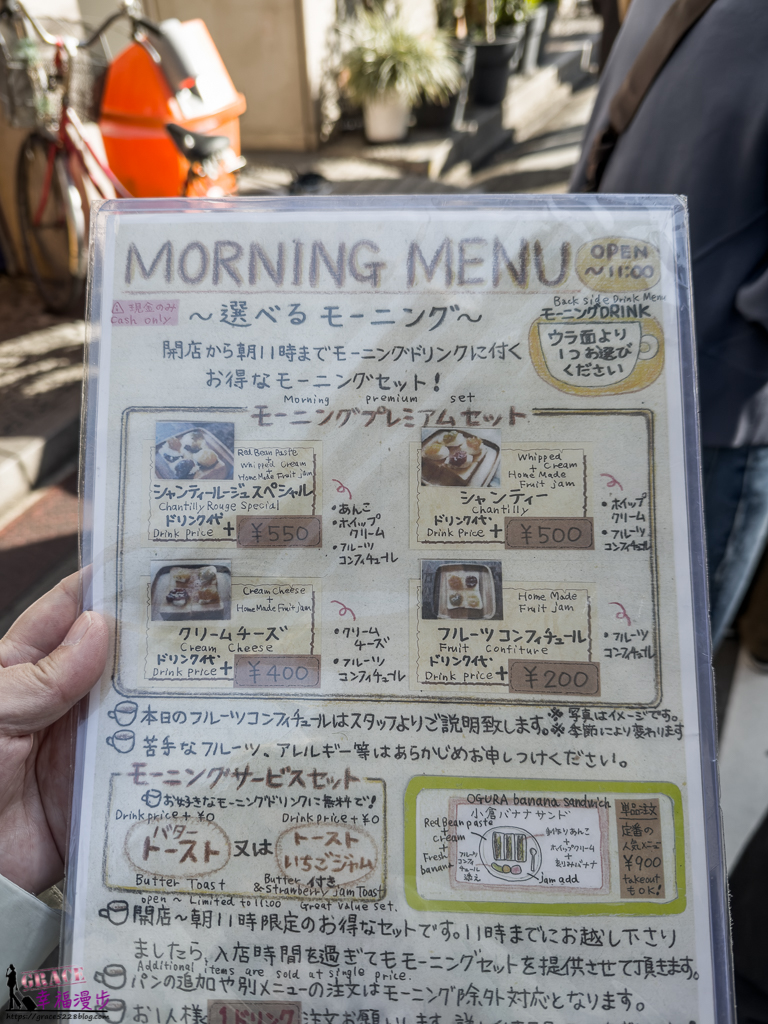 MORNING MENU
OPEN
～11:00
⚠現金のみ
Cash only
～選べるモーニング～
Back side Drink Menu
モーニングDRINK
ウラ面より
1つお選び
ください
開店から朝11時までモーニングドリンクに付く
お得なモーニングセット!
Morning premium set
モーニングプレミアムセット
Red Bean Paste
+
Whipped Cream
+
Home Made Fruit jam
シャンティールージュスペシャル
Chantilly Rouge Special
ドリンク代+
Drink Price
¥550
・あんこ
・ホイップクリーム
・フルーツコンフィチュール
Whipped
+ Cream
Home Made
Fruit jam
シャンティー
Chantilly
ドリンク代+
Drink Price
¥500
・ホイップクリーム
・フルーツコンフィチュール
Cream Cheese
+
Home Made Fruit jam
クリームチーズ
Cream Cheese
ドリンク代+
Drink price
¥400
・クリームチーズ
・フルーツコンフィチュール
Home Made
Fruit jam
フルーツコンフィチュール
Fruit Confiture
ドリンク代+
Drink price
¥200
・フルーツコンフィチュール
本日のフルーツコンフィチュールはスタッフよりご説明致します。
※写真はイメージです。
※季節により変わります
苦手なフルーツ、アレルギー等はあらかじめお申しつけください。
モーニングサービスセット
お好きなモーニングドリンクに無料で!
Drink price + ¥0
バタートースト
Butter Toast
又は
Drink price + ¥0
トースト
いちごジャム
付き
Butter
& Strawberry jam Toast
open ~ Limited to 11:00 Great value set.
OGURA banana sandwich
小倉バナナサンド
Red Bean paste
+
cream
+
Fresh
banana
フルーツコンフィチュール添え
手作りあんこ
+
ホイップクリーム
+
刻みバナナ
jam add
単品注文
定番の
人気メニュー
¥900
takeout
もOK!
開店～朝11時限定のお得なセットです。11時までにお越し下さり
ましたら、入店時間を過ぎてもモーニングセットを提供させて頂きます。
Additional items are sold at single price.
パンの追加や別メニューの注文はモーニング除外対応となります。
お1人様1ドリンク注文お願いします
GRACE
幸福漫步
https://grace5228blog.com